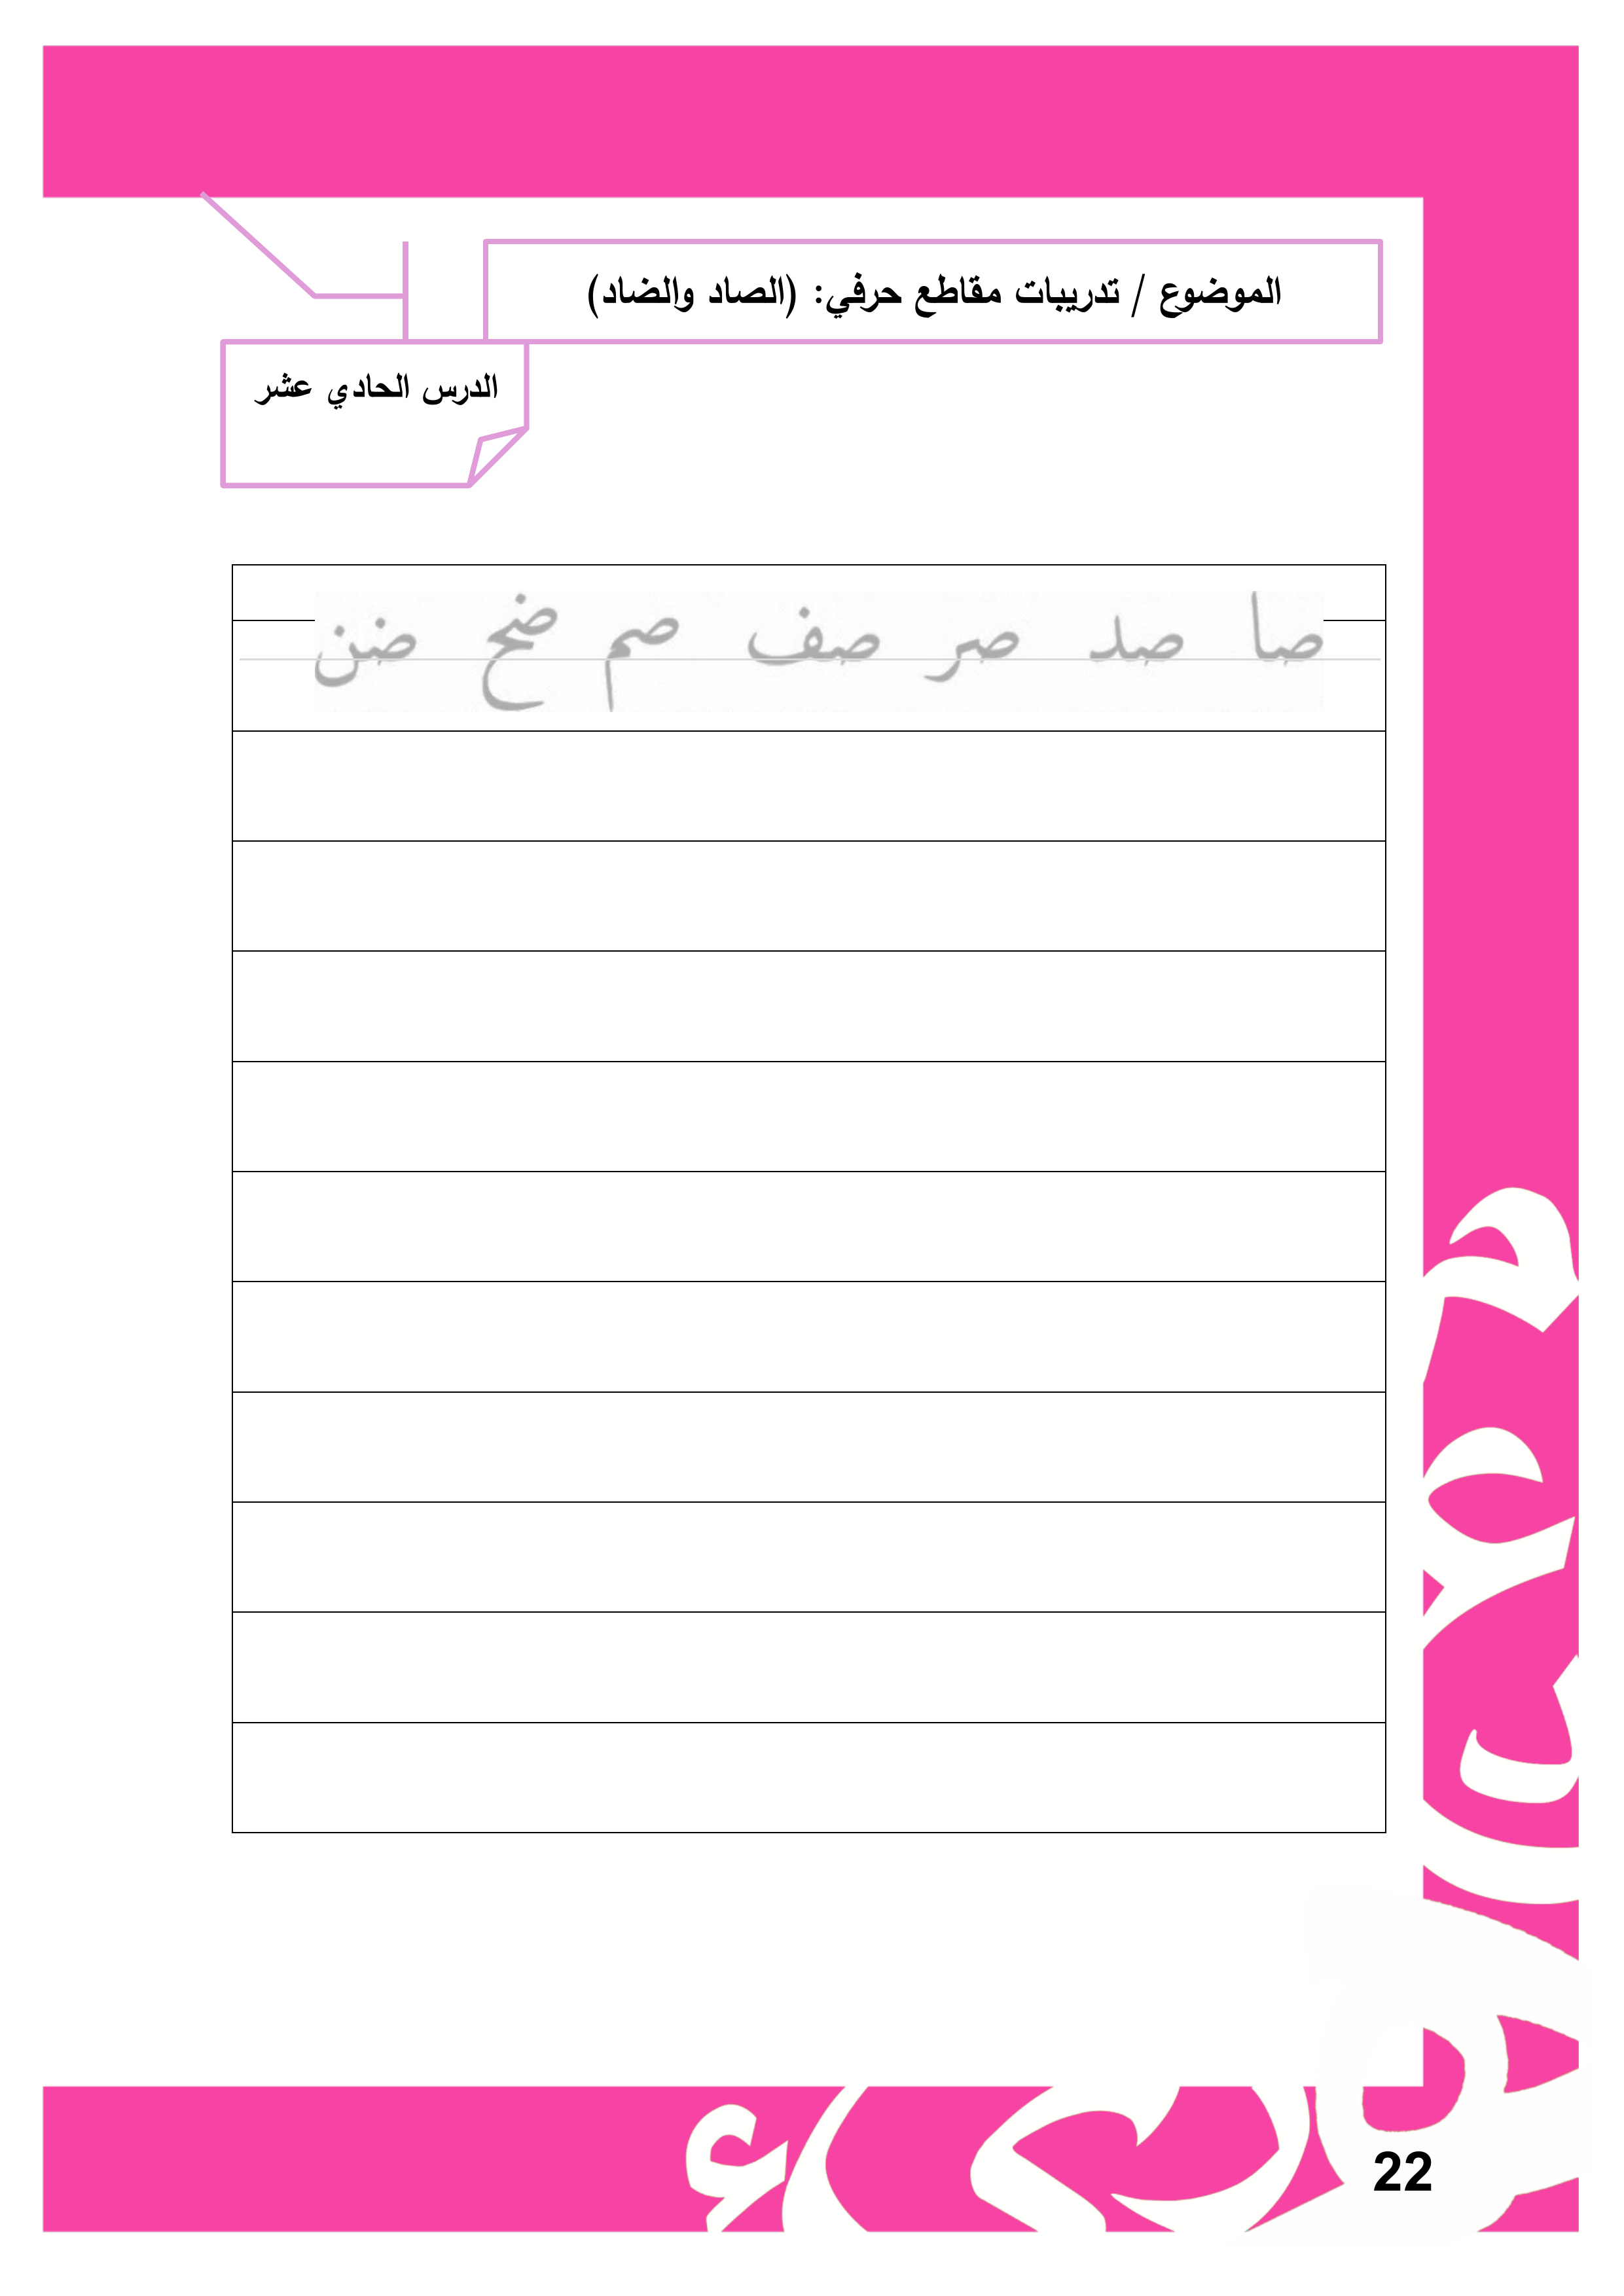 الموضوع / تدريبات مقاطع حرفي: (الصاد والضاد)
الدرس الحادي عشر
صا صد صر صف صم ضح ضن
22